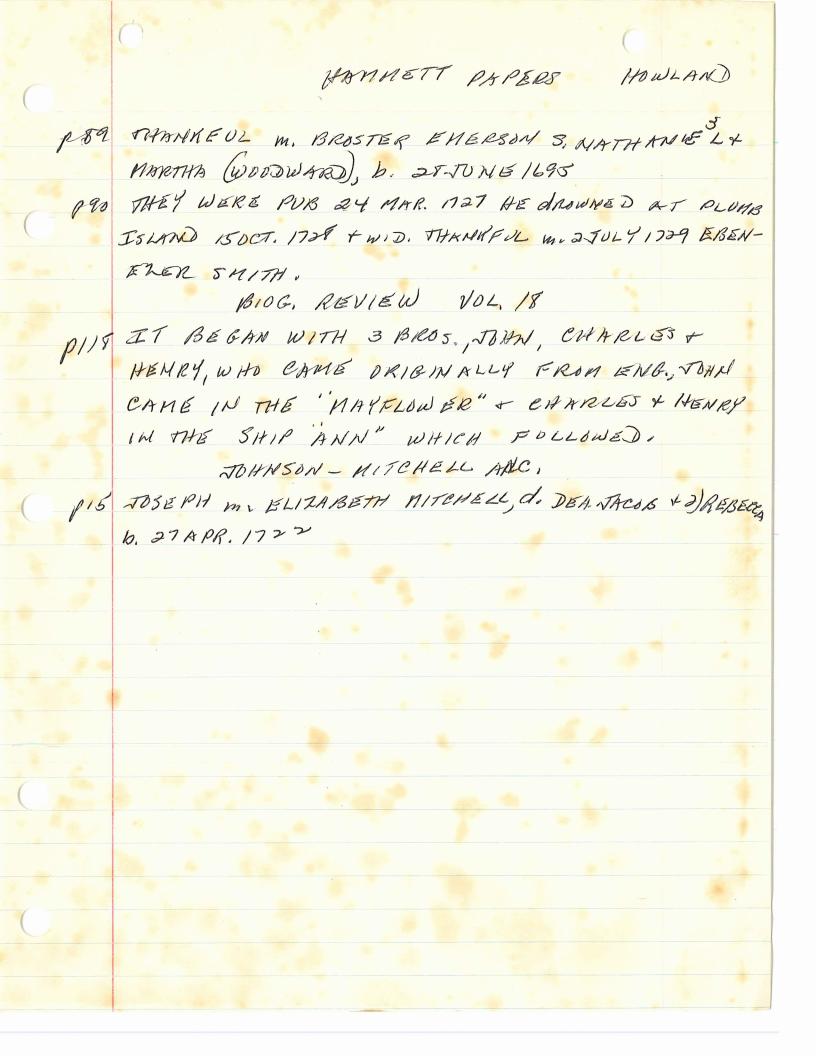 HAMMETT PAPERS HOWLAND
p 89 THANKFUL m. BROSTER EMERSON S. NATHANIEL³ +
MARTHA (WOODWARD), b. 28 JUNE 1695
p90 THEY WERE PUB 24 MAR. 1727 HE dROWNED AT PLUMB
ISLAND 15 OCT. 1728 + WID. THANKFUL m. 2 JULY 1729 EBEN-
EZER SMITH.
BIOG. REVIEW VOL. 18
p118 IT BEGAN WITH 3 BROS., JOHN, CHARLES +
HENRY, WHO CAME ORIGINALLY FROM ENG., JOHN
CAME IN THE "MAYFLOWER" + CHARLES + HENRY
IN THE SHIP "ANN" WHICH FOLLOWED.
JOHNSON - MITCHELL ANC.
p15 JOSEPH m. ELIZABETH MITCHELL, d. DEA. JACOB + 2) REBECCA
b. 27 APR. 1722